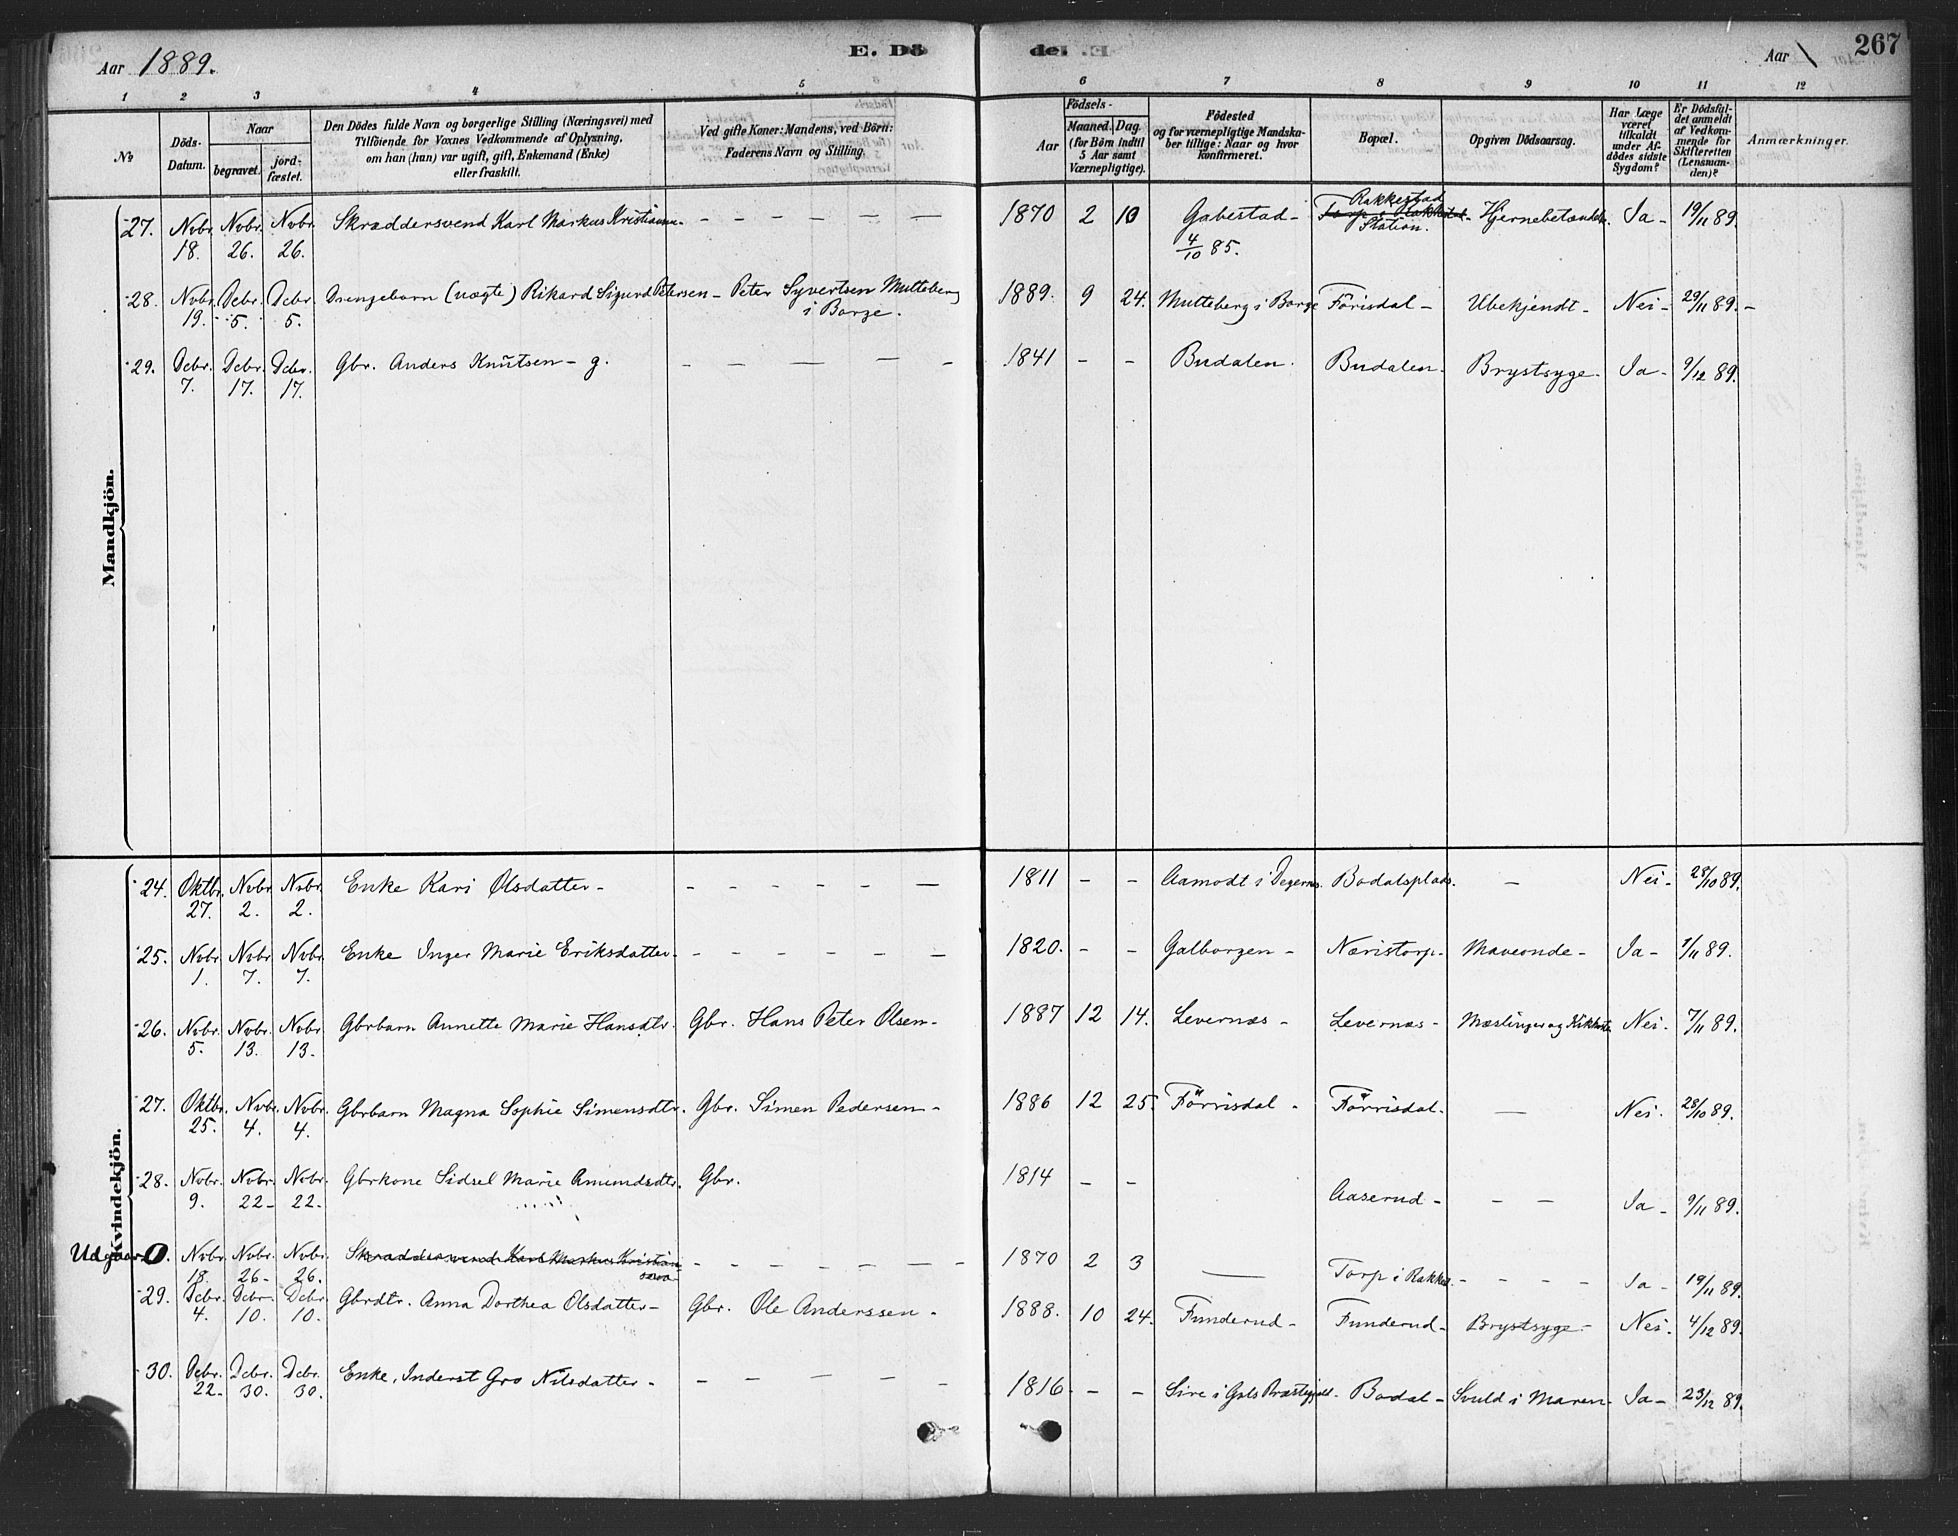 Aar 1889.
E. Dö
del E.
Aar
267
1 2 3 4 5 6 7 8 9 10 11 12
No
Döds-
Datum.
Naar
begravet.
jord-
fæstet.
Den Dödes fulde Navn og borgerlige Stilling (Næringsvei) med
Tilföiende for Voxnes Vedkommende af Oplysning,
om han (hun) var ugift, gift, Enkemand (Enke)
eller fraskilt.
Ved gifte Koner: Mandens, ved Börn:
Faderens Navn og Stilling.
Födsels-
Aar
Maaned.
Dag.
(for Börn indtil
5 Aar samt
Værnepligtige).
Födested
og for værnepligtige Mandska-
ber tillige: Naar og hvor
konfirmeret.
Bopæl.
Opgiven Dödsaarsag.
Har Læge
været
tilkaldt
under Af-
dödes sidste
Sygdom?
Er Dödsfal-
det anmeldt
af Vedkom-
mende for
Skifteretten
(Lensman-
den)?
Anmærkninger.
Mandkjön.
27. Nvbr. 18. Nvbr. 26. Nvbr. 26. Skræddersvend Karl Markus Kristiansen - 1870 2 10 Gabestad - 4/10 85. Torp i Rakkestad Rakkestad Station. Hjernebetændelse. Ja - 19/11 89.
28. Nvbr. 19. Dcbr. 5. Dcbr. 5. Drengebarn (uægte) Rikard Sigurd Petersen - Peter Syvertsen Mutteberg i Borge. 1889. 9 24. Mutteberg i Borge Förisdal - Ubekjendt - Nei - 29/11 89. -
29. Dcbr. 7. Dcbr. 17. Dcbr. 17. Gbr. Anders Knutsen - g. 1841 - - Budalen. Budalen. Brystsyge. Ja - 9/12 89.
Kvindekjön.
24. Oktbr. 27. Nvbr. 2. Nvbr. 2. Enke Kari Olsdatter - 1811 - - Aamodt i Degernes. Bodalsplads. - Nei - 28/10 89.
25. Nvbr. 1. Nvbr. 7. Nvbr. 7. Enke Inger Marie Eriksdatter. 1820. - - Galborgen - Næristorp. Maveonde - Ja - 1/11 89.
26. Nvbr. 5. Nvbr. 13. Nvbr. 13. Gbrbarn Annette Marie Hansdtr. Gbr. Hans Peter Olsen - 1887 12 14. Levernæs - Levernæs - Mæslinger og Kikhoste Nei. 7/11 89.
27. Oktbr. 25. Nvbr. 4. Nvbr. 4. Gbrbarn Magna Sophie Simensdtr. Gbr. Simen Pedersen - 1886 12 25. Förrisdal - Förrisdal. - Nei. 28/10 89.
28. Nvbr. 9. Nvbr. 22 - Nvbr. 22 - Gbrkone Sidsel Marie Amundsdtr. Gbr. 1814 - - Aaserud - - - Ja - 9/11 89.
Udgaar 0. Nvbr. 18. Nvbr. 26 - Nvbr. 26. Skræddersvend Karl Markus Kristiansen 1870 2 3 - Torp i Rakkes. - Ja - 19/11 89.
29. Dcbr. 4. Dcbr. 10. Dcbr. 10. Gbrdtr. Anna Dorthea Olsdatter - Gbr. Ole Anderssen - 1888. 10 24. Funderud - Funderud - Brystsyge - Nei. 4/12 89.
30. Dcbr. 22 - Dcbr. 30. Dcbr. 30. Enke, Inderst Gro Nilsdatter - 1816. - - Sire i Gols Præstegjeld - Bodal - Svuld i Maven - Ja - 23/12 89.